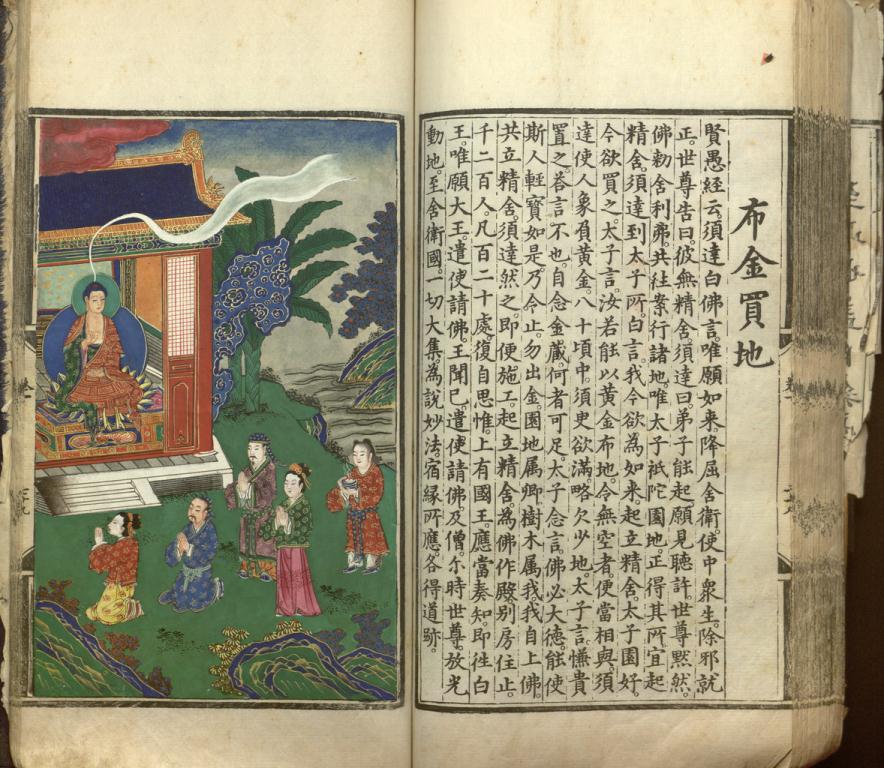 布金買地
賢愚經云。須達白佛言。唯願如來。降屈舍衛。使中衆生。除邪就
正。世尊告曰。彼無精舍。須達曰。弟子能起。願見聽許。世尊黙然。
佛勅舍利弗。共往案行諸地。唯太子祇陀園地。正得其所。宜起
精舍。須達到太子所。白言。我今欲為如來。起立精舍。太子園好。
今欲買之。太子言。汝若能以黃金布地。令無空者。便當相與。須
達使人象負黃金。八十頃中。須臾欲滿。略欠少地。太子言。慊貴
置之。荅言不也。自念金藏。何者可足。太子念言。佛必大德。能使
斯人輕寶如是。乃令止。勿出金。園地属卿。樹木属我。我自上佛。
共立精舍。須達然之。即便施工。起立精舍。為佛作殿。別房住止。
千二百人。凡百二十處。復自思惟。上有國王。應當奏知。即往白
王。唯願大王。遣使請佛。王聞已。遣使請佛。及僧。尒時世尊。放光
動地。至舍衛國。一切大集。為說妙法。宿緣所應。各得道跡。